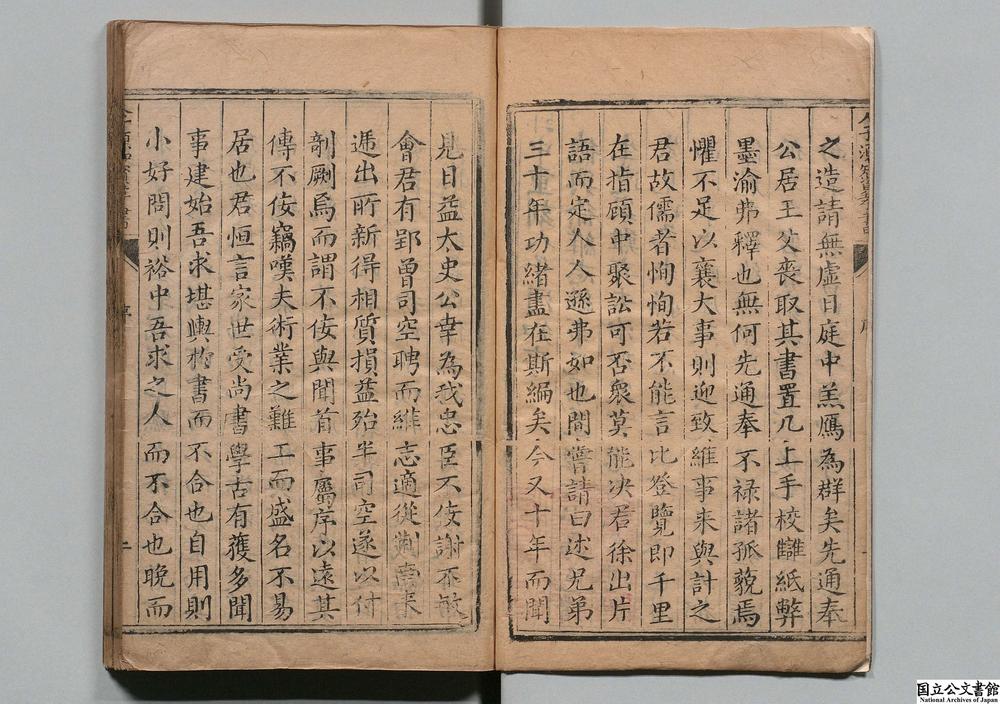 之造請無虛日庭中羔鴈為群矣先通奉
公居王父喪取其書置几上手校讎紙弊
墨渝弗釋也無何先通奉不禄諸孤藐焉
懼不足以襄大事則迎致維事来與計之
君故儒者恂恂若不能言比登覽即千里
在指顧中聚訟可否衆莫能决君徐出片
語而定人人遜弗如也間嘗請曰述兄弟
三十年功緒盡在斯編矣今又十年而聞
見日益太史公幸為我忠臣不佞謝不敏
會君有郢曾司空聘而維志適從荆南来
逓出所新得相質損益殆半司空遂以付
剞劂焉而謂不佞與聞首事屬序以遠其
傳不佞竊嘆夫術業之難工而盛名不易
居也君恒言家世受尚書學古有獲多聞
事建始吾求堪輿於書而不合也自用則
小好問則裕中吾求之人而不合也晩而
序
二
国立公文書館
National Archives of Japan